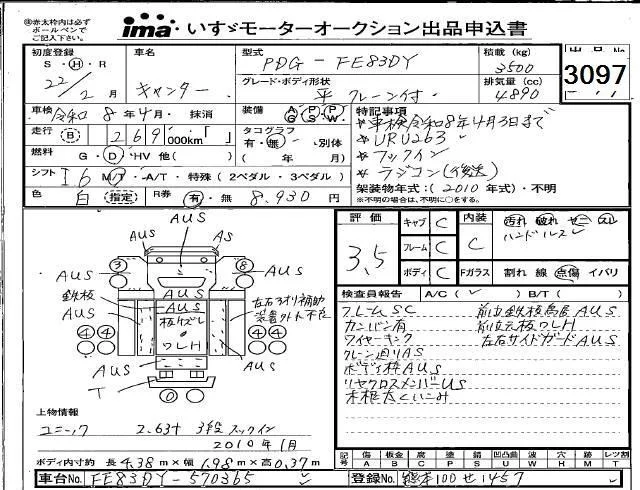 ※赤太枠内は必ず
ボールペンで
ご記入下さい。
ima いすゞモーターオークション出品申込書
初度登録 S・H・R 22/2月
車名 キャンター
型式 PDG-FE83DY
グレード・ボディ形状 平 クレーン付
積載(kg) 3500
排気量(cc) 4890
出品No
3097
車検 令和 8年4月・抹消
装備 A P P G S W
走行 B 269000km「 」
タコグラフ 有・無・別体 ( 年 月)
燃料 G・D・HV 他( )
シフト I 6 M/T・A/T・特殊(2ペダル・3ペダル)
色 白 指定
R券 有・無 8,930円
特記事項
*車検令和8年4月3日まで
*URU263
*フックイン
*ラジコン(後送)
架装物年式:(2010年式)・不明
※不明の場合は、不明に○をする。
AUS
AUS AS
3 8
AUS AUS
鉄板
AUS
AUS
AUS
板ケズレ
ワレH
左右ヨオリ補助
4 4 4 4
AUS
T
0
評価 3.5
キャブ C
フレーム C
ボディ C
内装 C
汚れ 破れ
ハンドルスレ
Fガラス 割れ 線 点傷 イバリ
検査員報告 A/C( ✓ ) B/T( )
フレームSC 前立鉄板鳥居AUS
カンバン有 前立木板ワレH
ワイヤーキンク 左右サイドガードAUS
クレーン廻りAS
ボディ枠AUS
リヤクロスメンバーUS
木根太くいこみ
上物情報
ユニック 2.63t 3段 フックイン
2010年1月
ボディ内寸約 長4.38m×幅1.98m×高0.37m
記号 傷A 板金B 腐C 塗P 錆S 凹凸曲U 波W 穴H 跡M レツ割T
車台No. FE83DY-570365
登録No. 熊本100せ1457